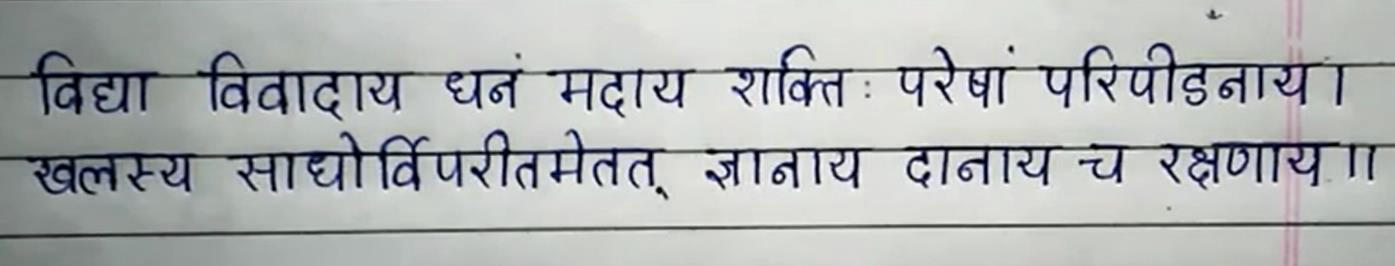 विद्या विवादाय धनं मदाय शक्तिः परेषां परिपीडनाय।
खलस्य साधोर्विपरीतमेतत् ज्ञानाय दानाय च रक्षणाय॥